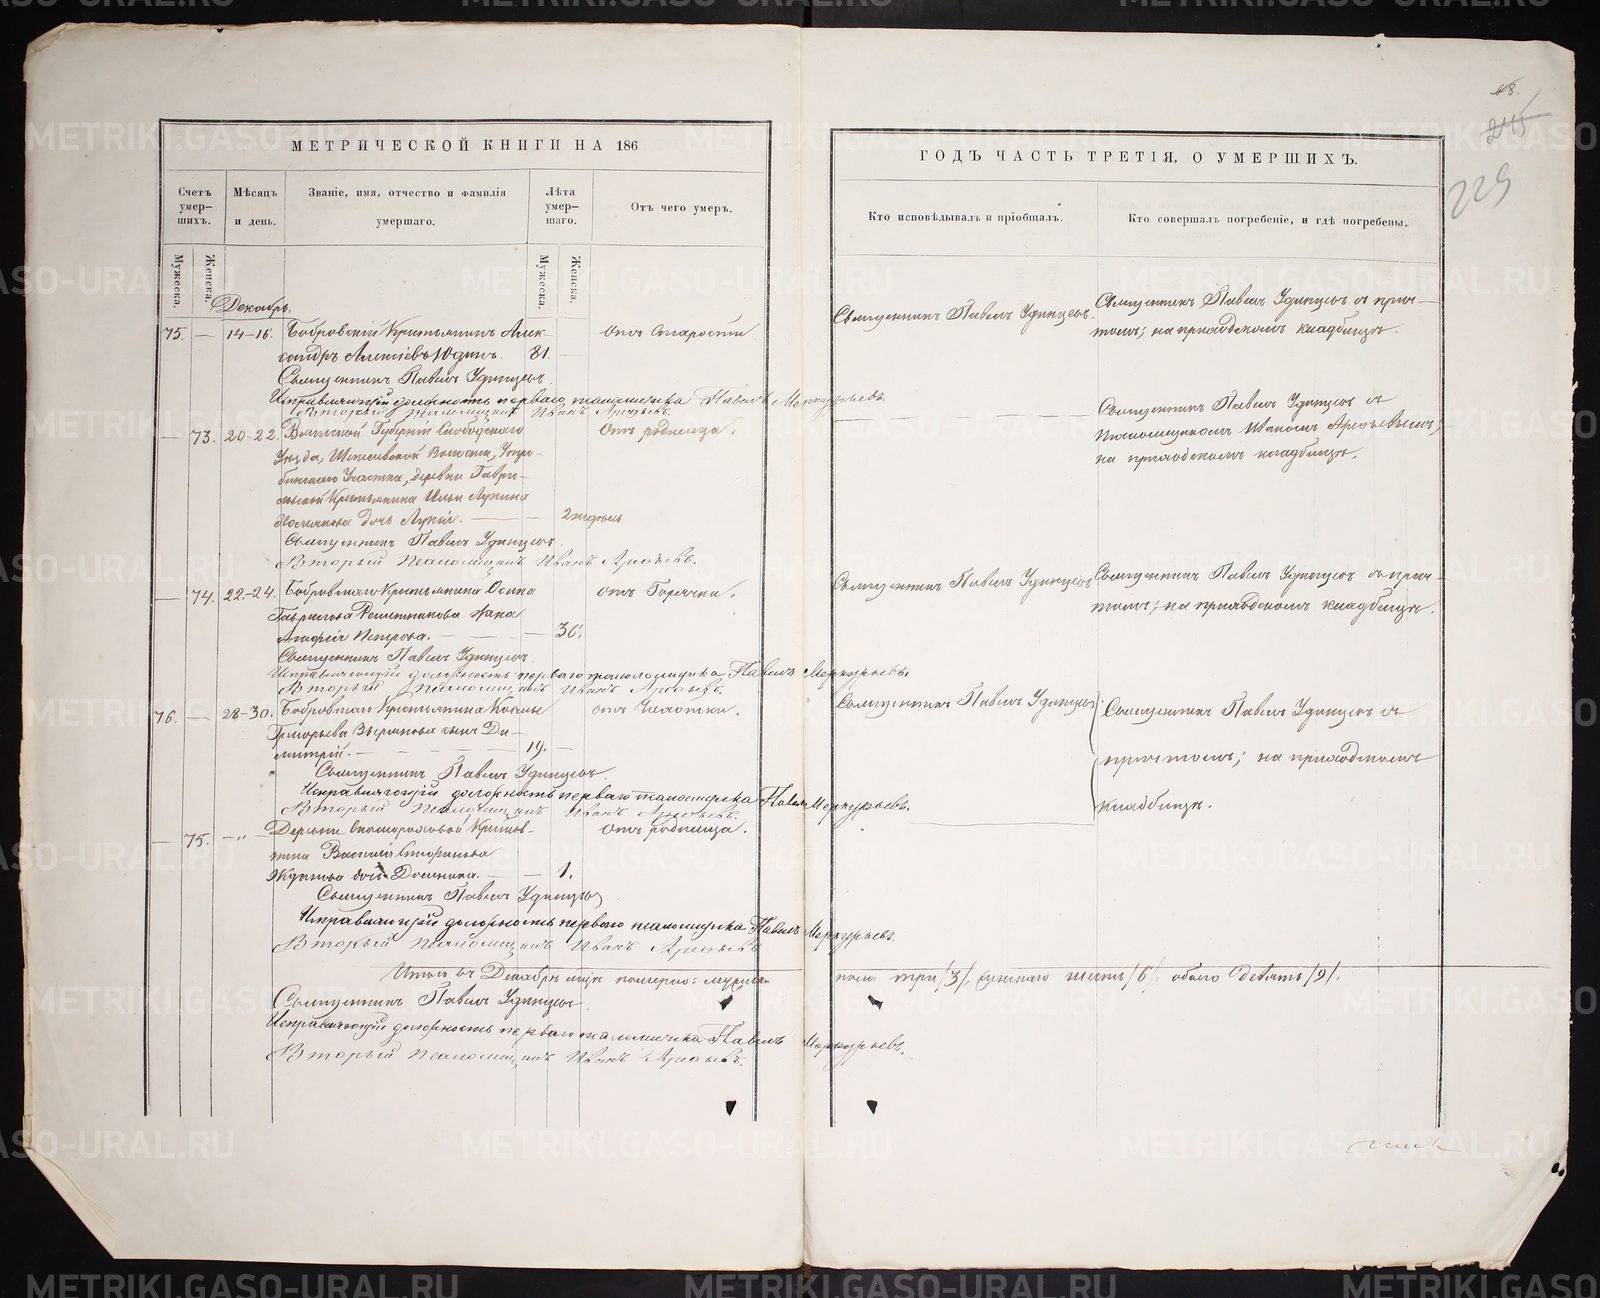 МЕТРИЧЕСКОЙ КНИГИ НА 186
ГОДЪ ЧАСТЬ ТРЕТІЯ, О УМЕРШИХЪ.
Счетъ умер-шихъ.
Мѣсяцъ и день.
Званіе, имя, отчество и фамилія умершаго.
Лѣта умер-шаго.
Отъ чего умеръ.
Кто исповѣдывалъ и пріобщалъ.
Кто совершалъ погребеніе, и гдѣ погребены.
Мужеска.
Женска.
Мужеска.
Женска.
Декабрь.
75. — 14-16. Бобровскій Крестьянинъ Алек-
сандръ Алексѣевъ Юдинъ. 81. —
Отъ Старости
Священникъ Павелъ Удинцовъ.
Священникъ Павелъ Удинцовъ съ прич-
томъ; на приходскомъ кладбищѣ.
Священникъ Павелъ Удинцовъ.
Исправляющій должность перваго псаломщика Павелъ Меркурьевъ.
Второй Псаломщикъ Иванъ Арефьевъ.
— 73. 20-22. Вятской Губерніи Слободскаго
Уѣзда, Волости,
Участка, деревни Гаври-
Крестьянина Ильи Лукина
дочь — — 2 недѣль
Отъ родимца.
Священникъ Павелъ Удинцовъ съ
Псаломщикомъ Иваномъ Арефьевымъ;
на приходскомъ кладбищѣ.
Священникъ Павелъ Удинцовъ.
Второй Псаломщикъ Иванъ Арефьевъ.
— 74. 22-24. Бобровскаго Крестьянина Осипа
Гаврилова Решетникова жена
Агафія Петрова. — — 36.
Отъ Горячки.
Священникъ Павелъ Удинцовъ
Священникъ Павелъ Удинцовъ съ прич-
томъ; на приходскомъ кладбищѣ.
Священникъ Павелъ Удинцовъ.
Исправляющій должность перваго псаломщика Павелъ Меркурьевъ.
Второй Псаломщикъ Иванъ Арефьевъ.
76. — 28-30. Бобровскаго Крестьянина Космы
Григорьева Зырянова сынъ Ди-
митрій. — 19. —
отъ Чахотки.
Священникъ Павелъ Удинцовъ
Священникъ Павелъ Удинцовъ съ
причтомъ; на приходскомъ
кладбищѣ.
Священникъ Павелъ Удинцовъ.
Исправляющій должность перваго псаломщика Павелъ Меркурьевъ.
Второй Псаломщикъ Иванъ Арефьевъ.
— 75. —„— Деревни Крестья-
нина Василія
дочь Домника. — — 1.
Отъ родимца.
Священникъ Павелъ Удинцовъ
Исправляющій должность перваго псаломщика Павелъ Меркурьевъ.
Второй Псаломщикъ Иванъ Арефьевъ
Итого въ Декабрѣ мѣсяцѣ померло: мужеска
пола три /3/, женскаго шесть /6/, обоего девять /9/.
Священникъ Павелъ Удинцовъ.
Исправляющій должность перваго псаломщика Павелъ Меркурьевъ.
Второй Псаломщикъ Иванъ Арефьевъ.
68.
225
METRIKI.GASO-URAL.RU